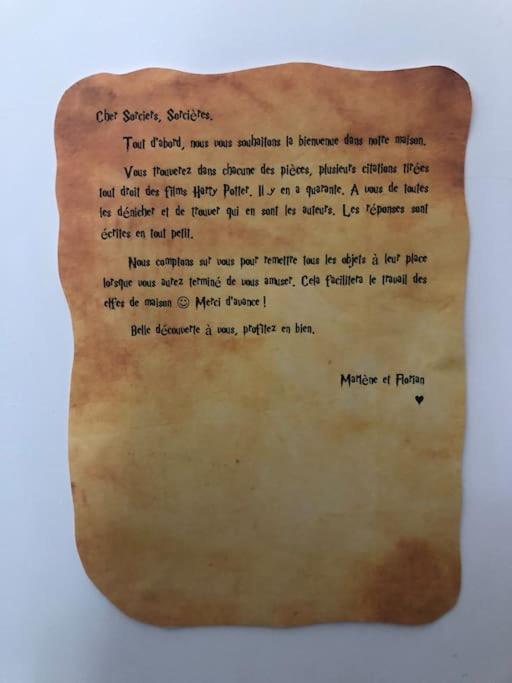 Cher Sorciers, Sorcières.
Tout d'abord, nous vous souhaitons la bienvenue dans notre maison.
Vous trouverez dans chacune des pièces, plusieurs citations tirées
tout droit des films Harry Potter. Il y en a quarante. A vous de toutes
les dénicher et de trouver qui en sont les auteurs. Les réponses sont
écrites en tout petit.
Nous comptons sur vous pour remettre tous les objets à leur place
lorsque vous aurez terminé de vous amuser. Cela facilitera le travail des
elfes de maison ☺ Merci d'avance !
Belle découverte à vous, profitez en bien.
Marlène et Florian
♥